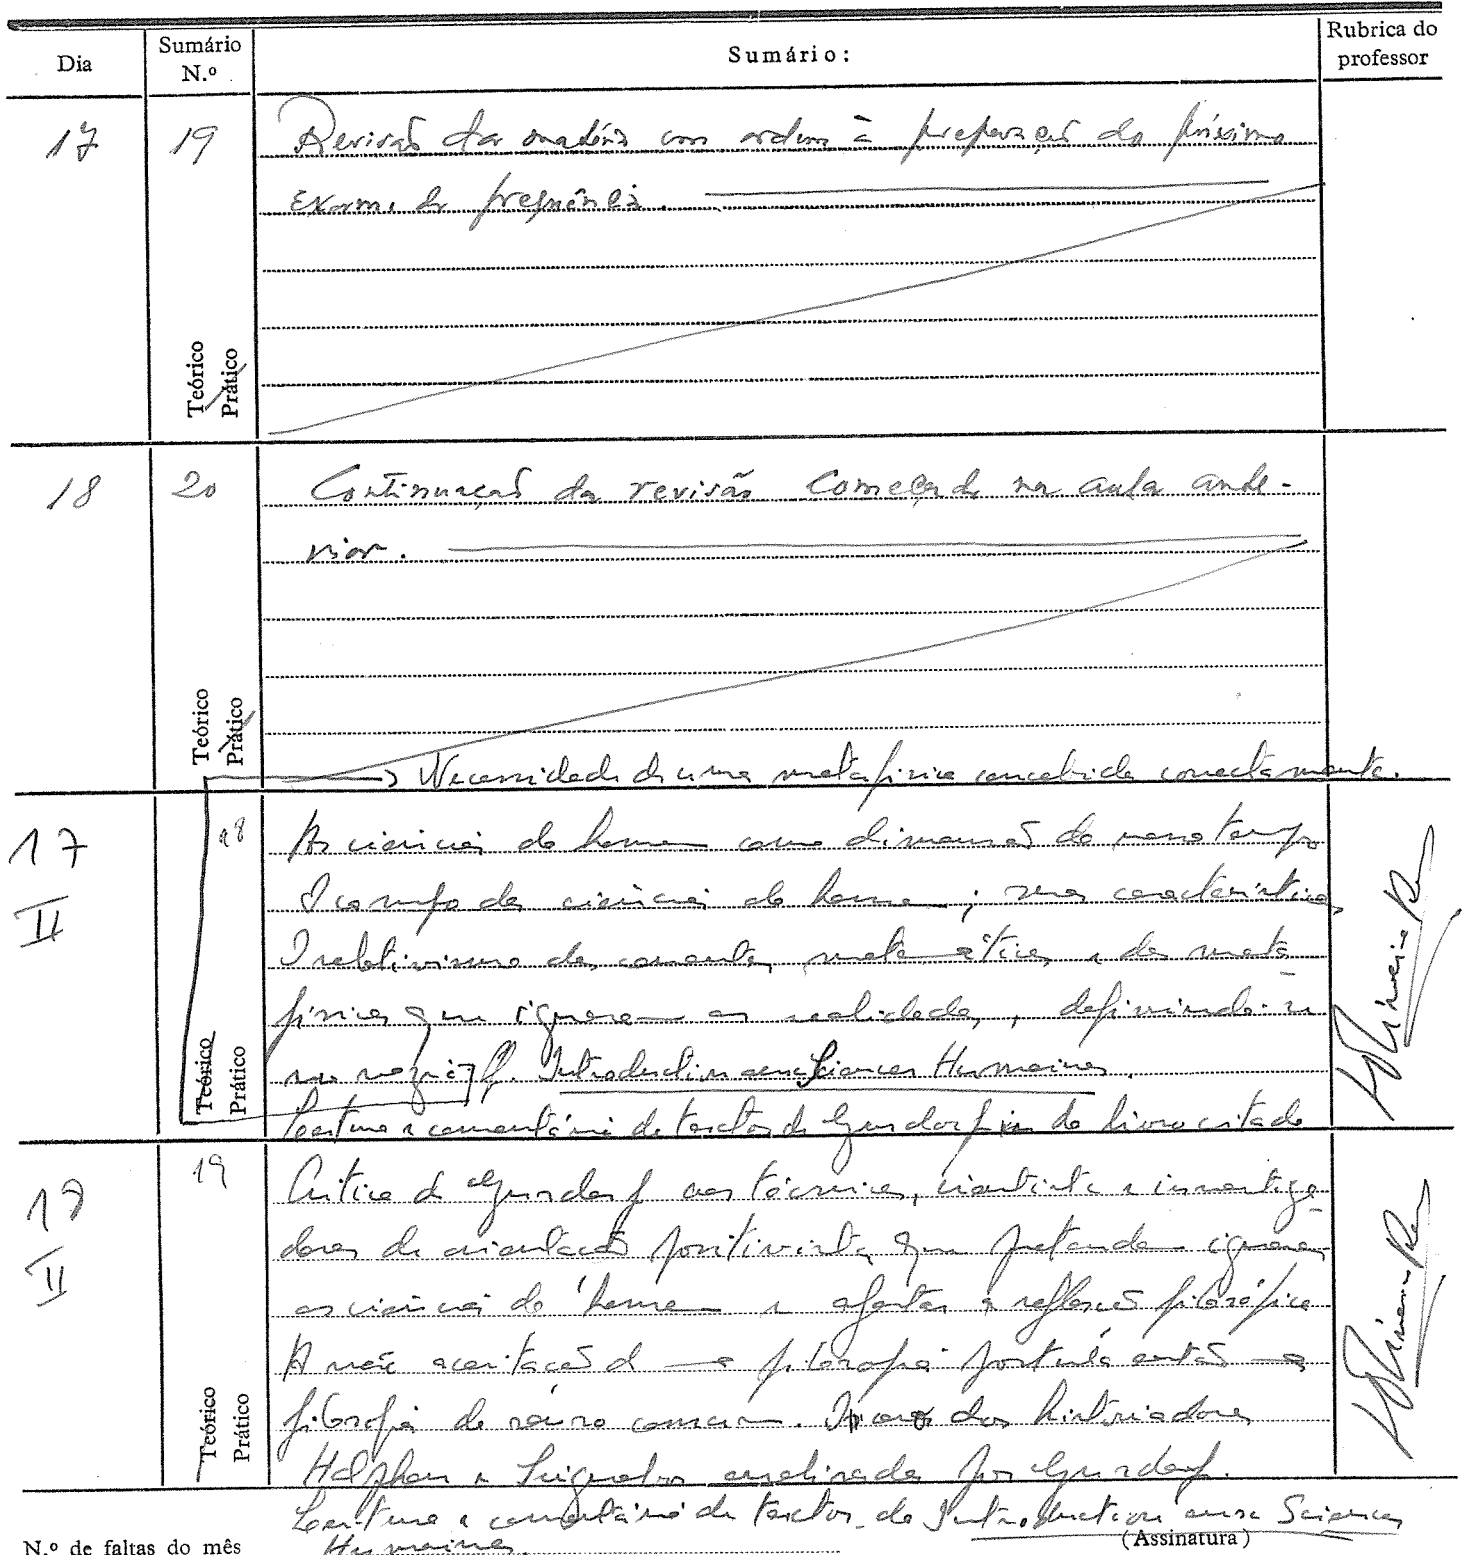 Dia
Sumário N.º
Sumário:
Rubrica do professor
17
19
Revisão da matéria com ordem à preparação do próximo
Exame de frequência.
Teórico
Prático
18
20
Continuação da revisão começada na aula ante-
rior.
Teórico
Prático
Necessidade de uma metafísica concebida correctamente.
17
II
18
As ciências do homem como dimensão do nosso tempo
O campo das ciências do homem; suas características
O relativismo das correntes matemáticas e da meta-
física que ignoram as realidades, definindo-se
no vazio. Cf. Introduction aux Sciences Humaines.
Leitura e comentário de textos de Gusdorf do livro citado
Teórico
Prático
19
II
19
Crítica de Gusdorf aos técnicos, cientistas e investiga-
dores de orientação positivista que pretendem ignorar
as ciências do homem e afastar a reflexão filosófica
A não aceitação de uma filosofia postula então uma
filosofia de senso comum. O caso dos historiadores
Halphen e Seignobos analisada por Gusdorf.
Leitura e comentário de textos da Introduction aux Sciences
Humaines.
Teórico
Prático
N.º de faltas do mês
(Assinatura)